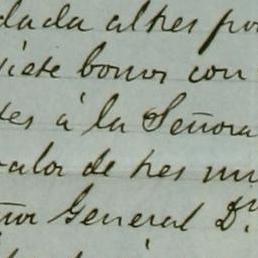 dada al tres por
siete bonos con
tes à la Señora
valor de tres mi
ñor General Dn.